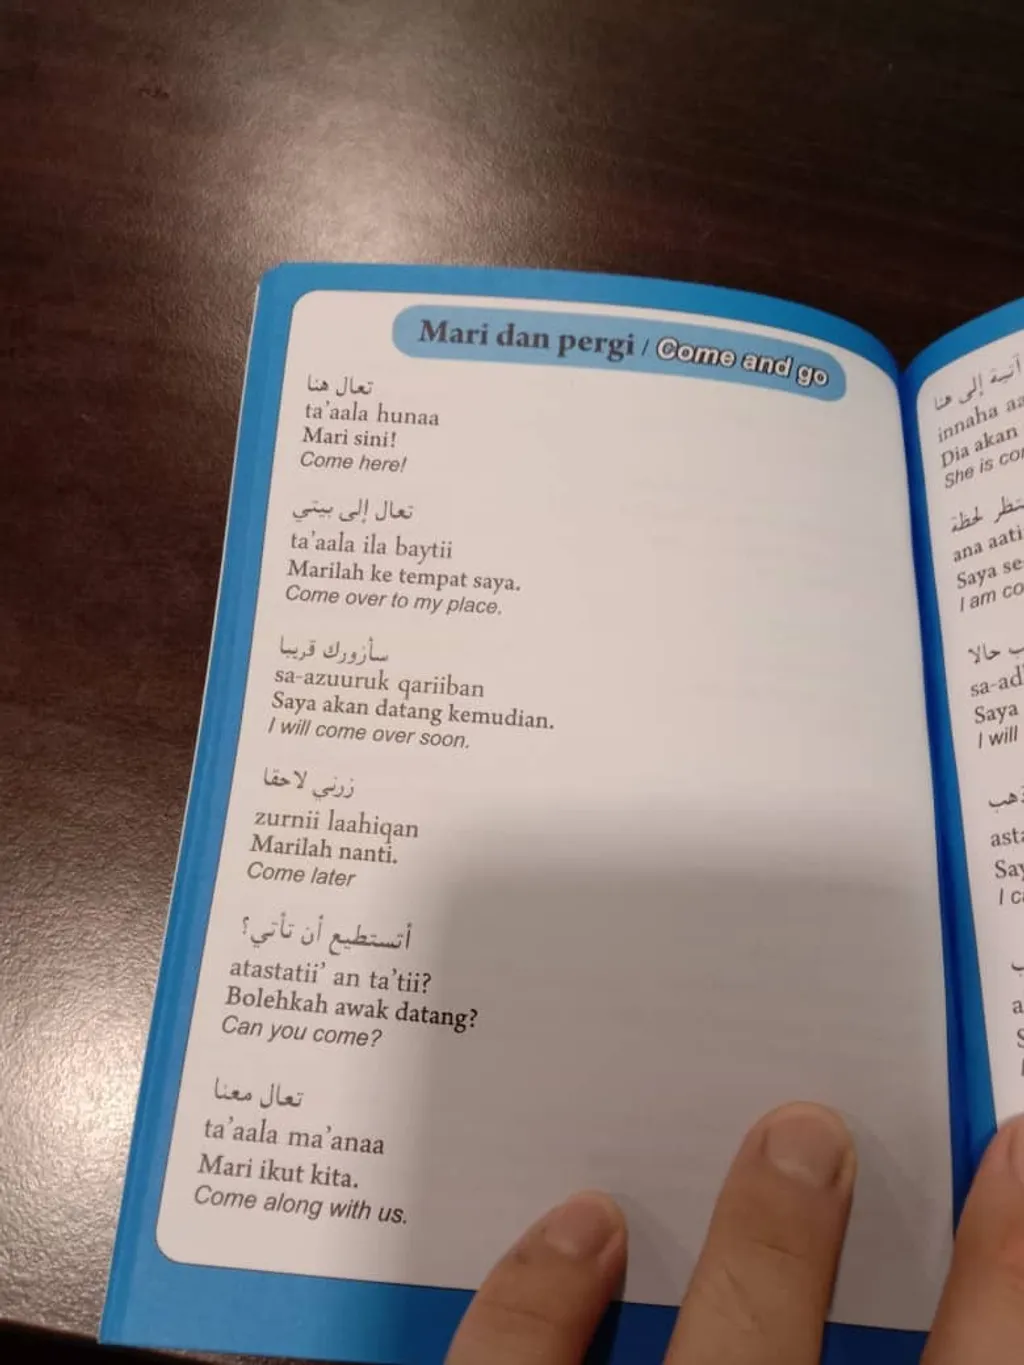 Mari dan pergi / Come and go
تعال هنا
ta'aala hunaa
Mari sini!
Come here!
تعال إلى بيتي
ta'aala ila baytii
Marilah ke tempat saya.
Come over to my place.
سأزورك قريبا
sa-azuuruk qariiban
Saya akan datang kemudian.
I will come over soon.
زرني لاحقا
zurnii laahiqan
Marilah nanti.
Come later
أتستطيع أن تأتي؟
atastatii' an ta'tii?
Bolehkah awak datang?
Can you come?
تعال معنا
ta'aala ma'anaa
Mari ikut kita.
Come along with us.
آتية إلى هنا
innaha
Dia akan
She is
لحظة
ana
Saya
I am
حالا
Saya
I will